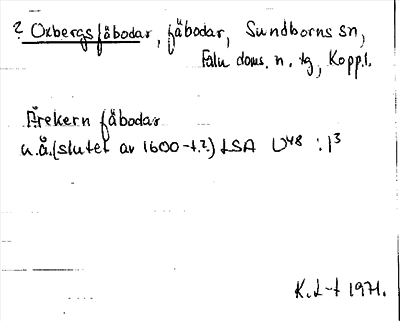 ? Oxbergsfäbodar, fäbodar, Sundborns sn,
Falu doms. n. tg, Kopp.l.
Årekern fäbodar
u.å. (slutet av 1600-t.?) LSA U48 : 1³
K. L-t 1971.